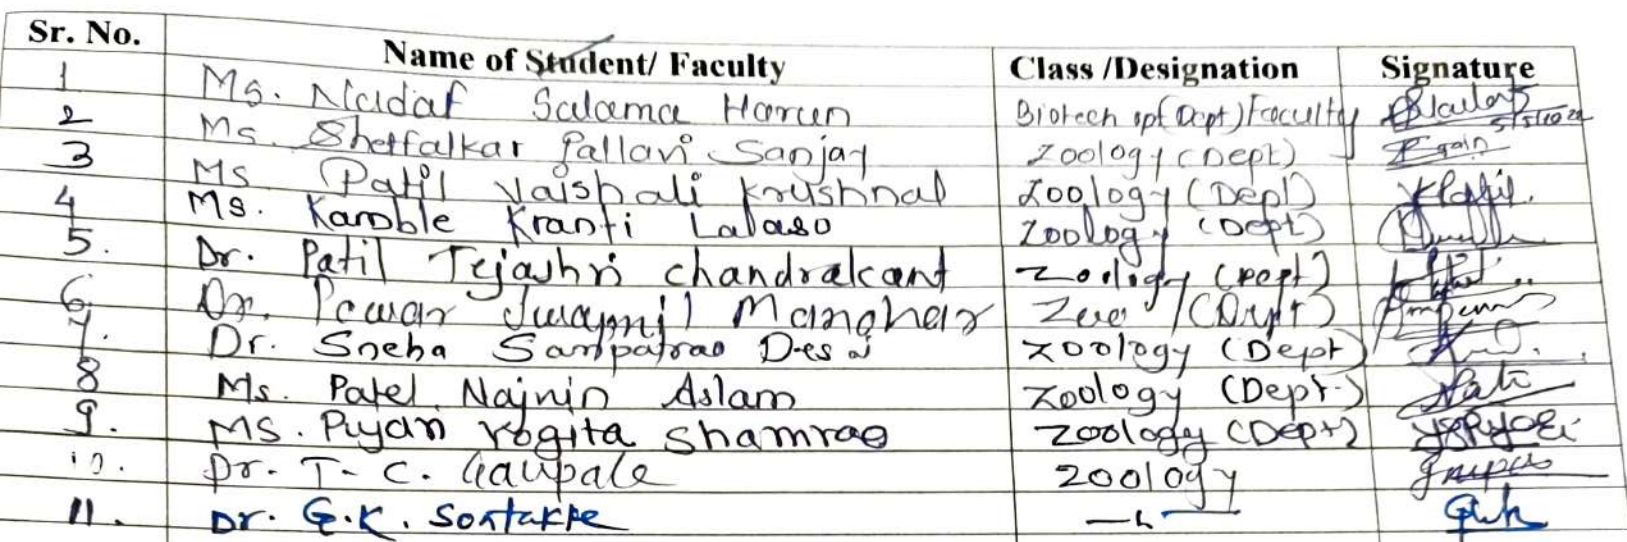 Sr. No. Name of Student/ Faculty Class /Designation Signature
1 Ms. Nadaf Salama Harun Biotech opt (Dept) Faculty
2 Ms. Shetfalkar Pallavi Sanjay Zoology (Dept)
3 Ms Patil Vaishali Krushnat Zoology (Dept)
4 Ms. Kamble Kranti Lalaso Zoology (Dept)
5. Dr. Patil Tejashri chandrakant Zoology (Dept)
6. Dr. Pawar Swapnil Manohar Zoo (Dept)
7. Dr. Sneha Sampatrao Desai Zoology (Dept)
8 Ms. Patel Najnin Aslam Zoology (Dept.)
9. MS. Pujari Yogita Shamrao Zoology (Dept)
10. Dr. T. C. Gaupale Zoology
11. Dr. G.K. Sontakke